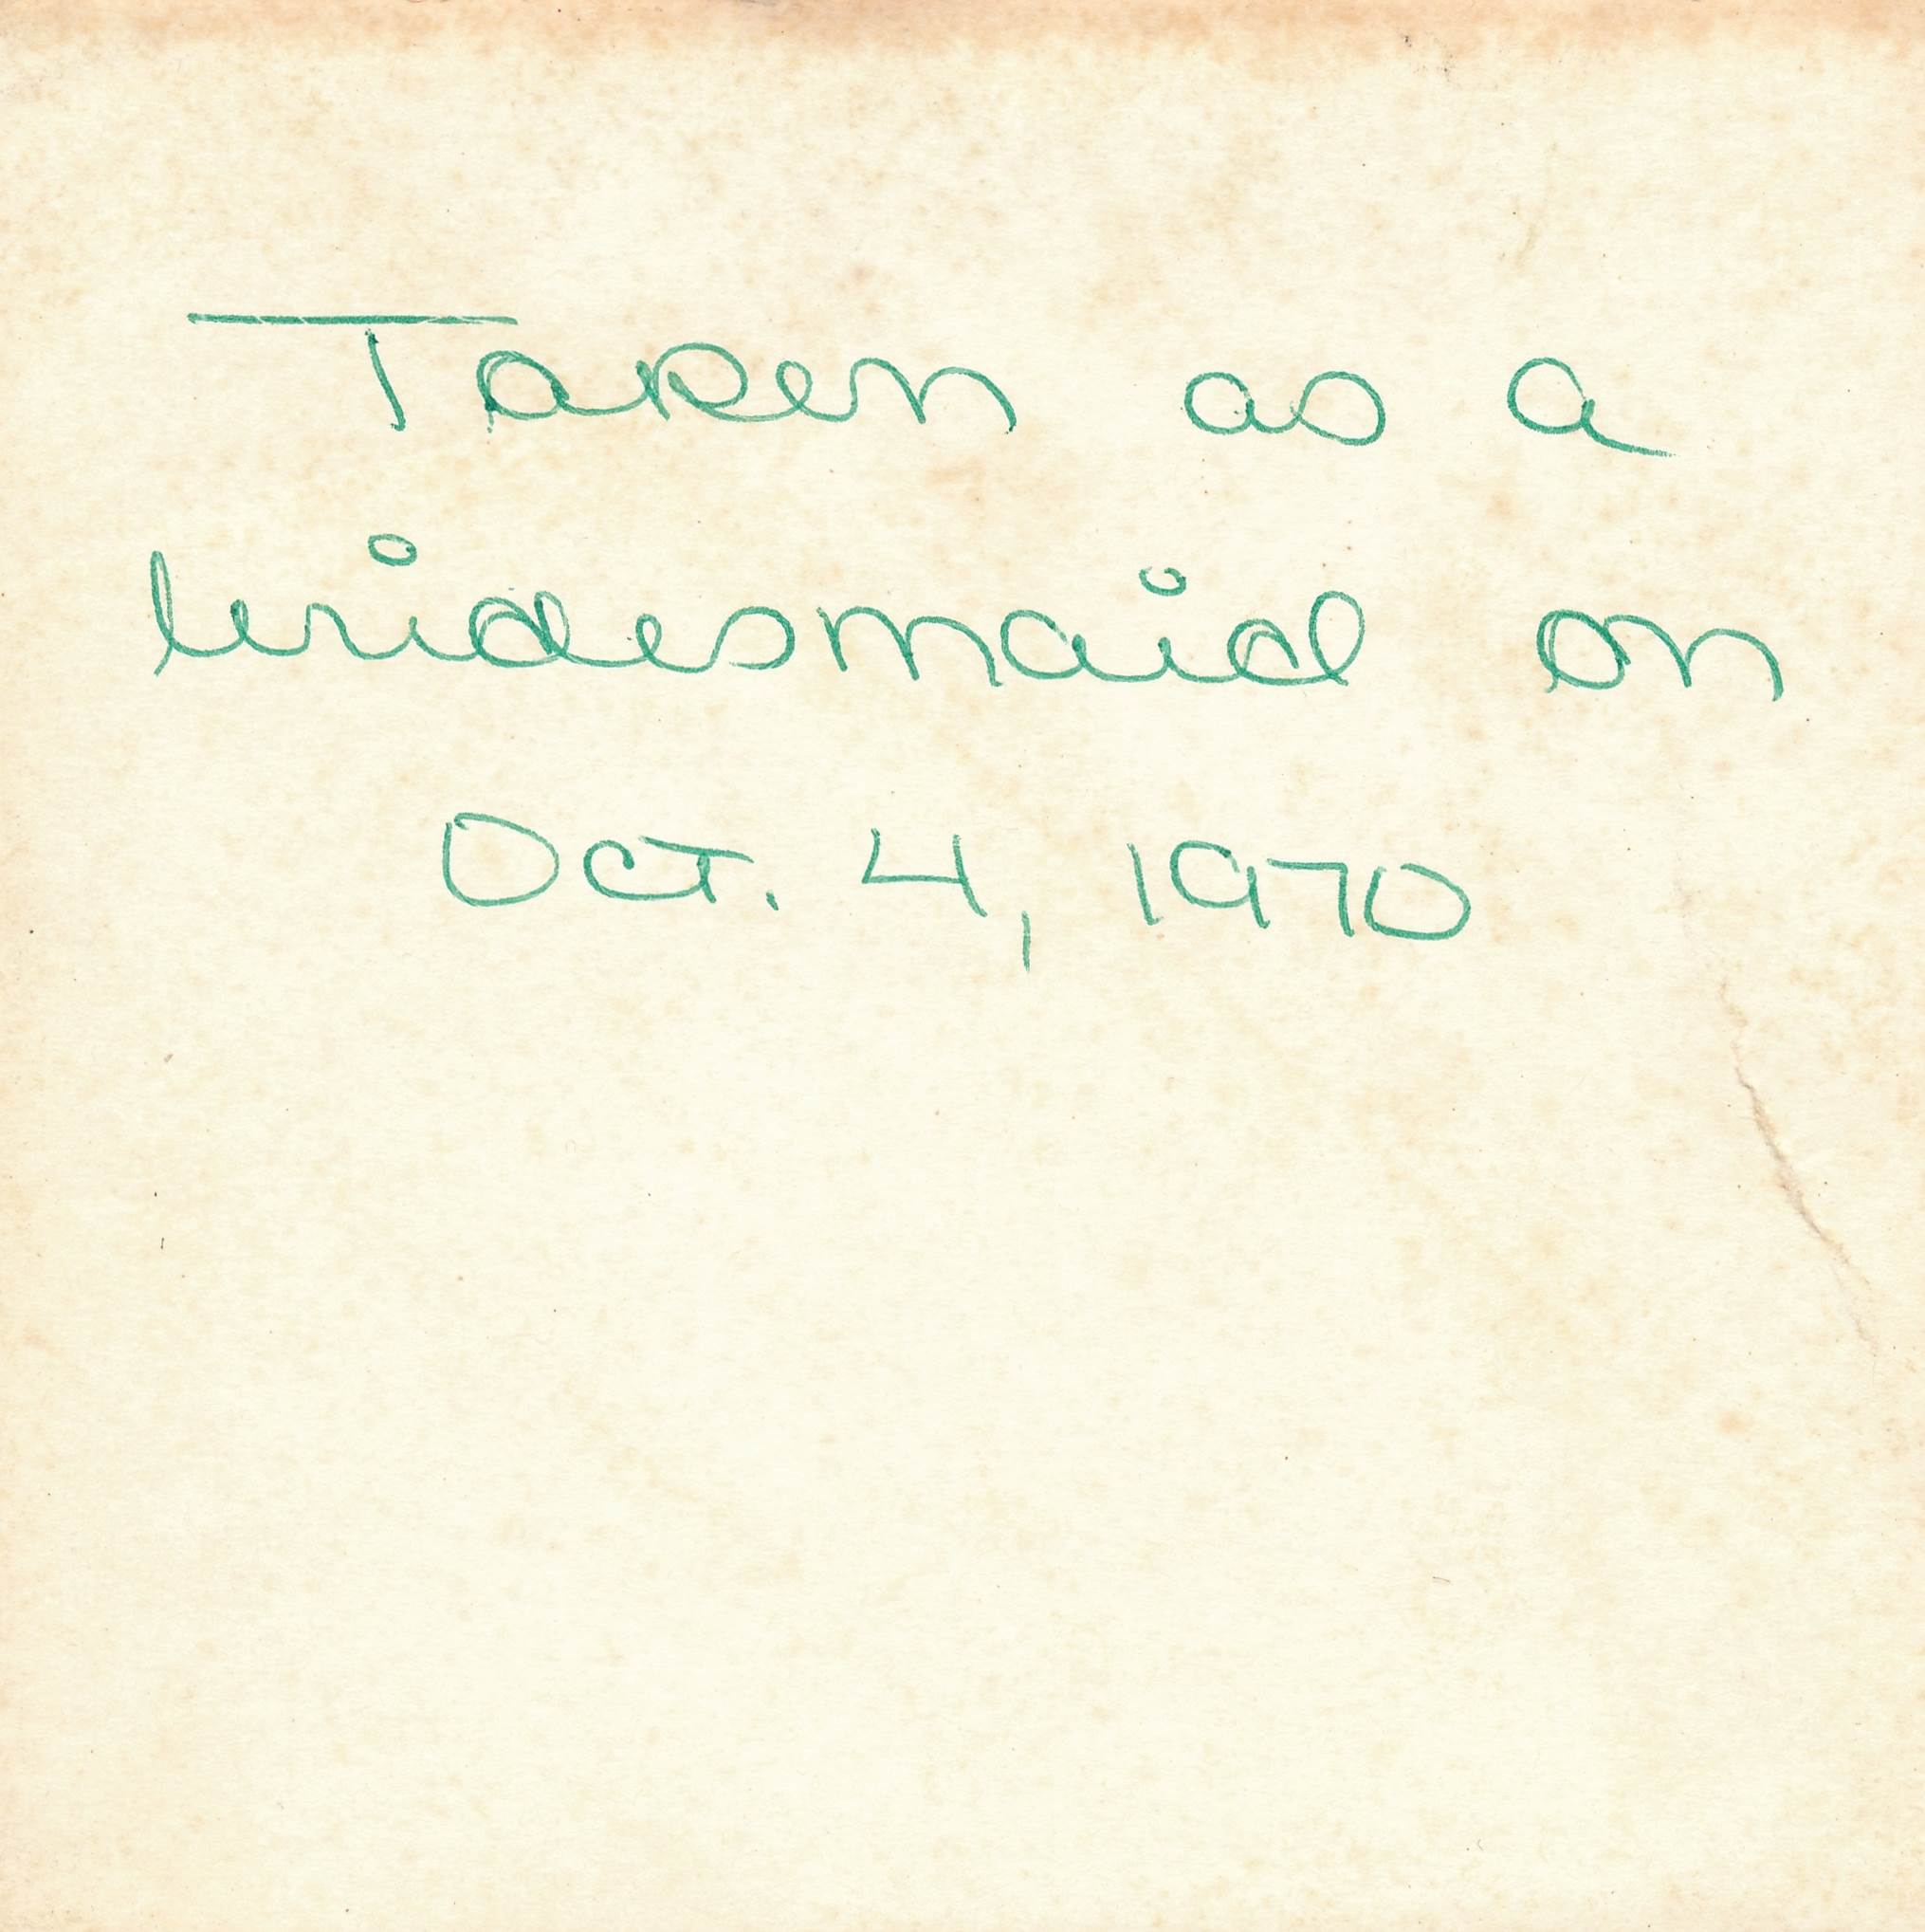 Taken as a
bridesmaid on
Oct. 4, 1970